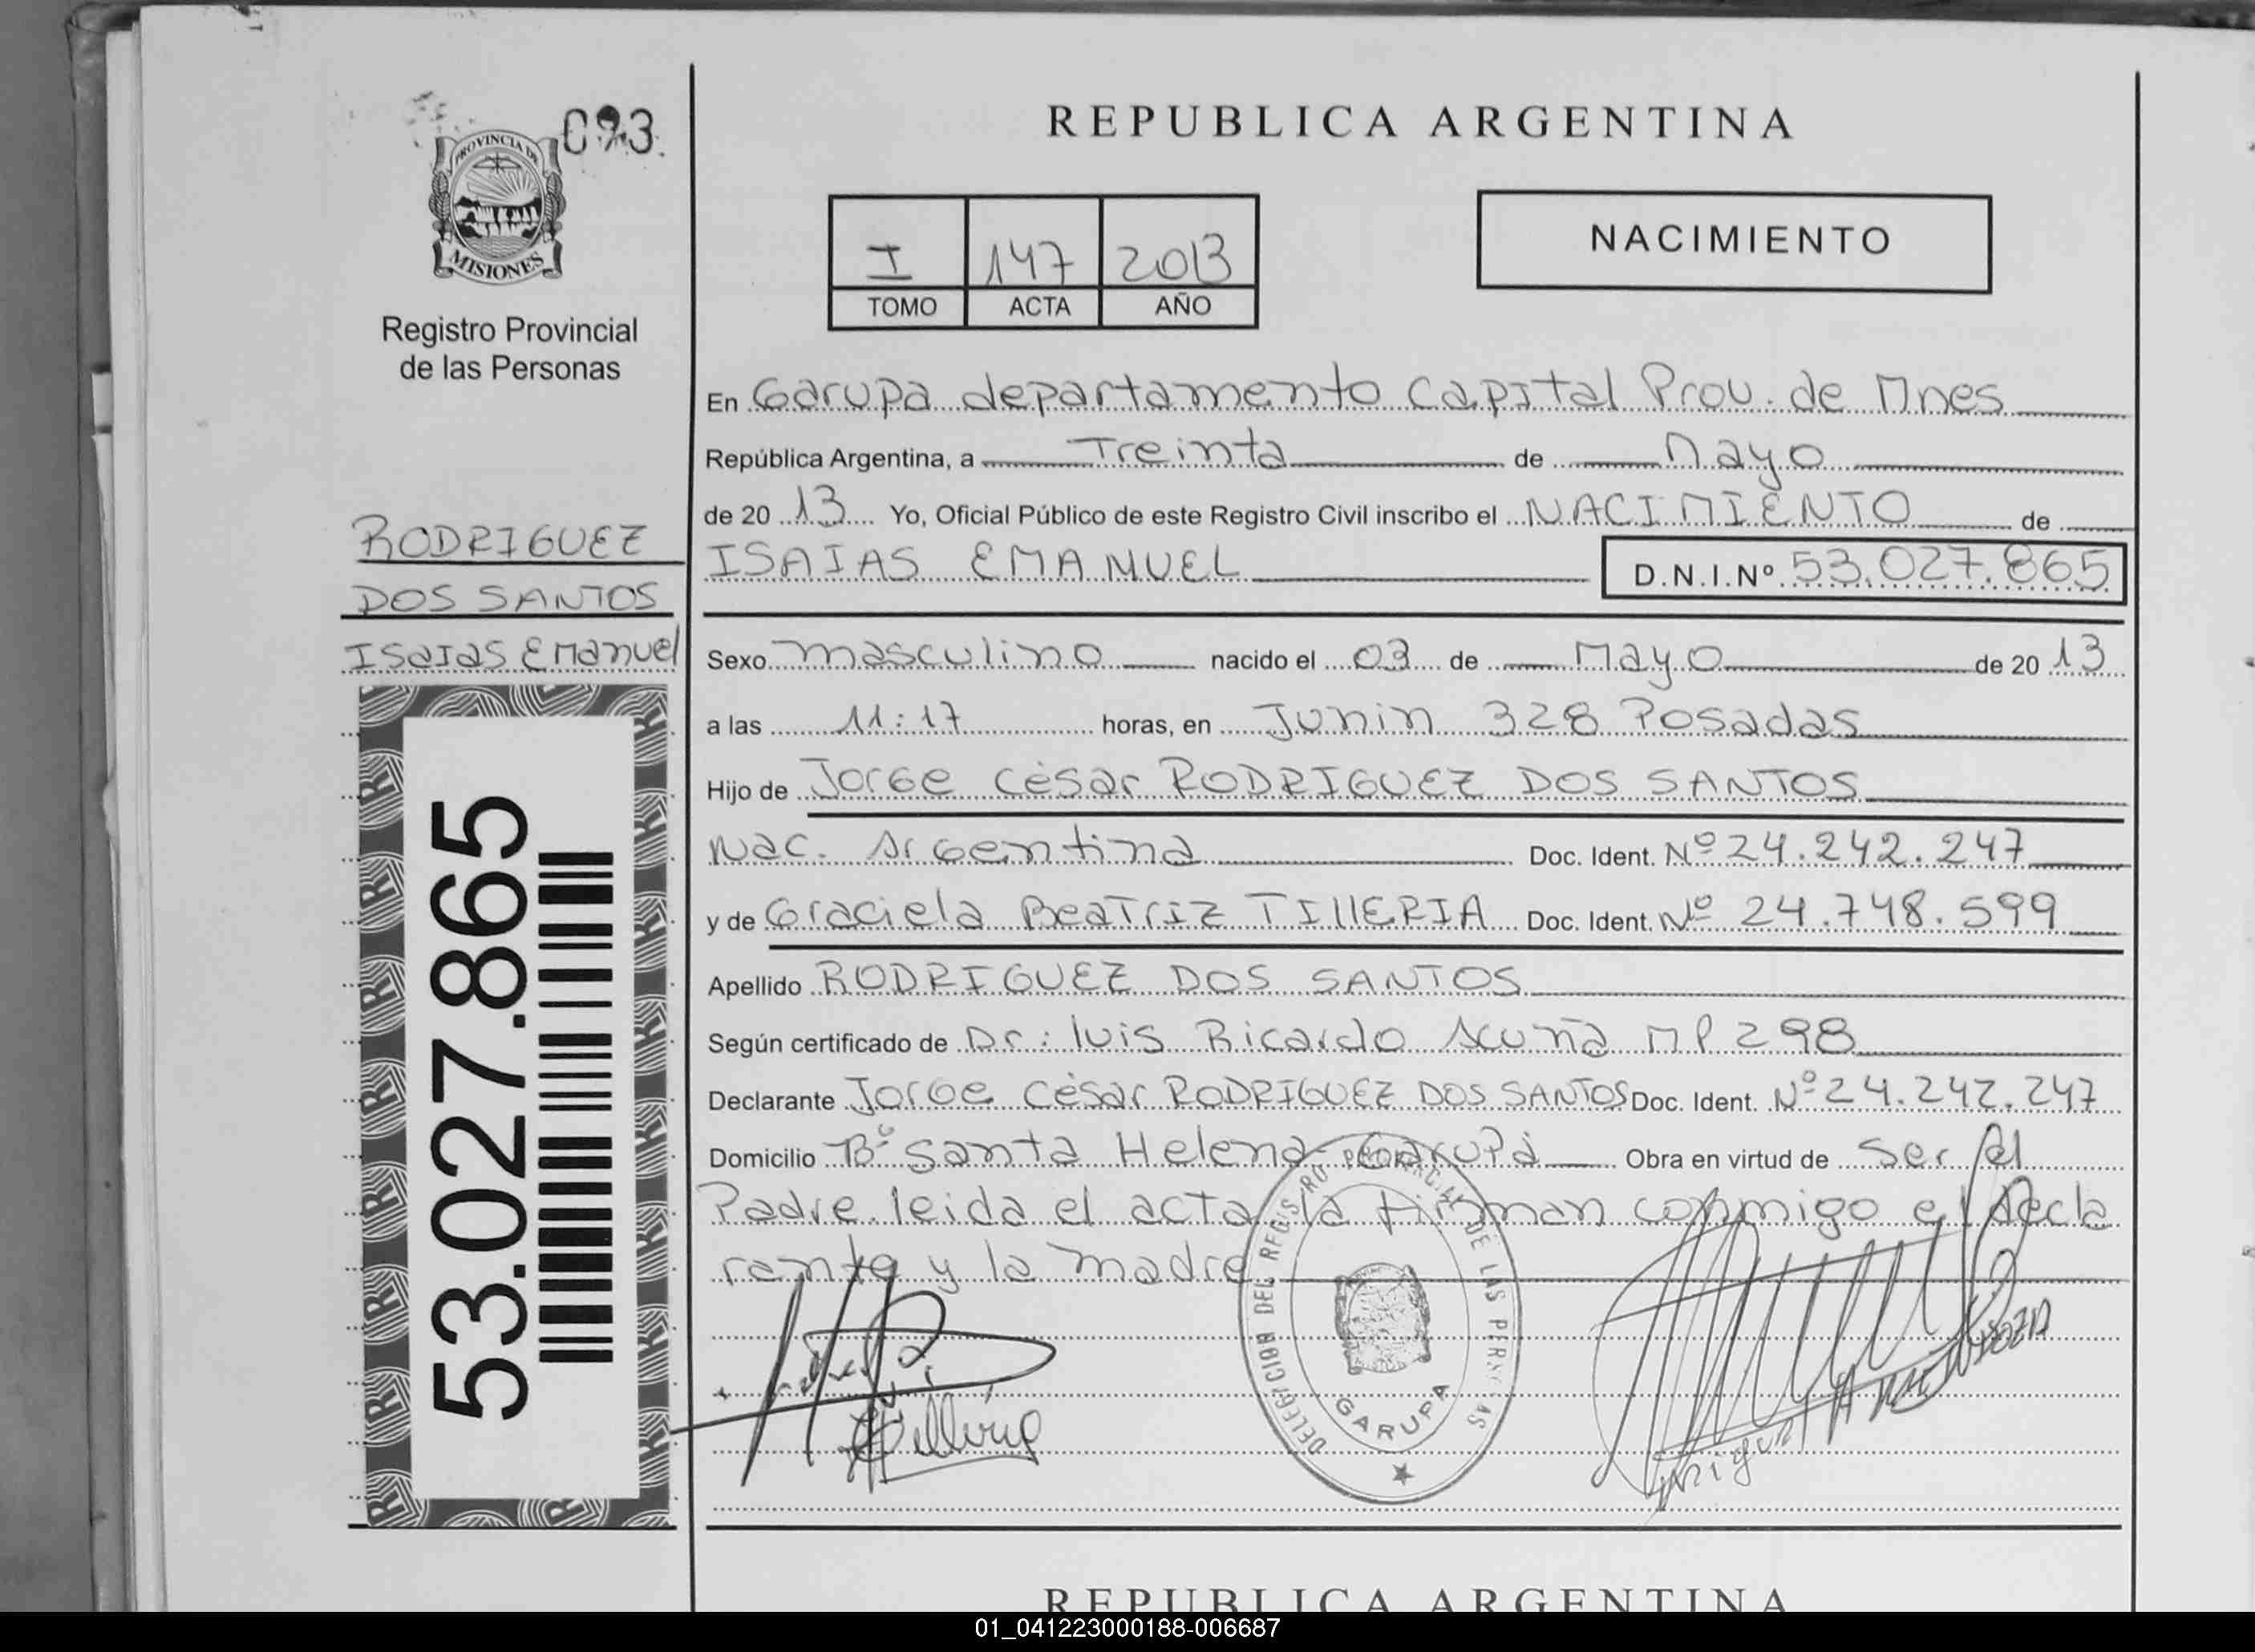 093
PROVINCIA DE
MISIONES
Registro Provincial
de las Personas
RODRIGUEZ
DOS SANTOS
ISaIas EManuel
53.027.865
REPUBLICA ARGENTINA
I 147 2013
TOMO ACTA AÑO
NACIMIENTO
En Garupa departamento Capital Prov. de Mnes
República Argentina, a Treinta de Mayo
de 20 13 Yo, Oficial Público de este Registro Civil inscribo el NACIMIENTO de
ISAIAS EMANUEL D.N.I.Nº 53.027.865
Sexo masculino nacido el 03 de Mayo de 20 13
a las 11:17 horas, en Junin 328 Posadas
Hijo de Jorge César RODRIGUEZ DOS SANTOS
Nac. Argentina Doc. Ident. Nº 24.242.247
y de Graciela BeaTriz TIllERIA Doc. Ident. Nº 24.748.599
Apellido RODRIGUEZ DOS SANTOS
Según certificado de Dr: luis Ricardo Acuña MP 298
Declarante Jorge César RODRIGUEZ DOS SANTOS Doc. Ident. Nº 24.242.247
Domicilio Bº Santa Helena Garupá Obra en virtud de Ser el
Padre leida el acta la firman conmigo el decla
rante y la madre
DELEGACION DEL REGISTRO PROVINCIAL DE LAS PERSONAS
GARUPA
REPUBLICA ARGENTINA
01_041223000188-006687